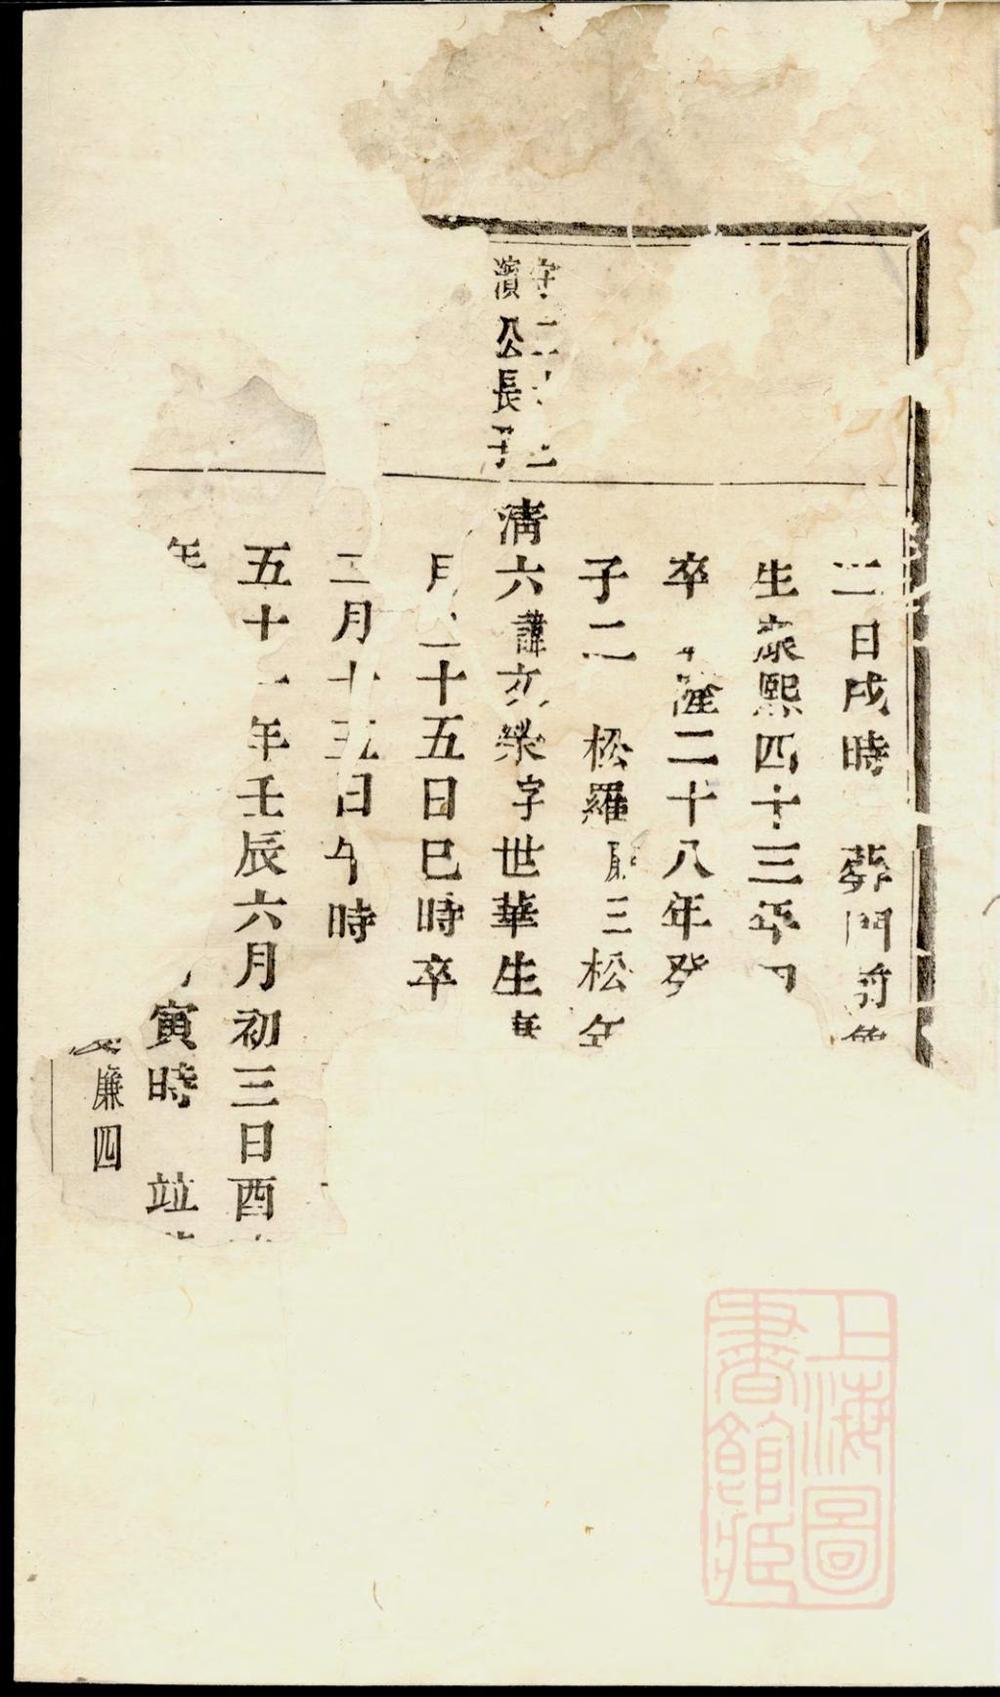 三日戌時 葬門前
生康熙四十三年
卒 隆二十八年癸
子二 松羅 三松
濱公長子
清六諱文榮字世華生
月二十五日巳時卒
二月十五日午時
五十一年壬辰六月初三日酉
年 寅時 竝
廉四
上海圖
書館藏